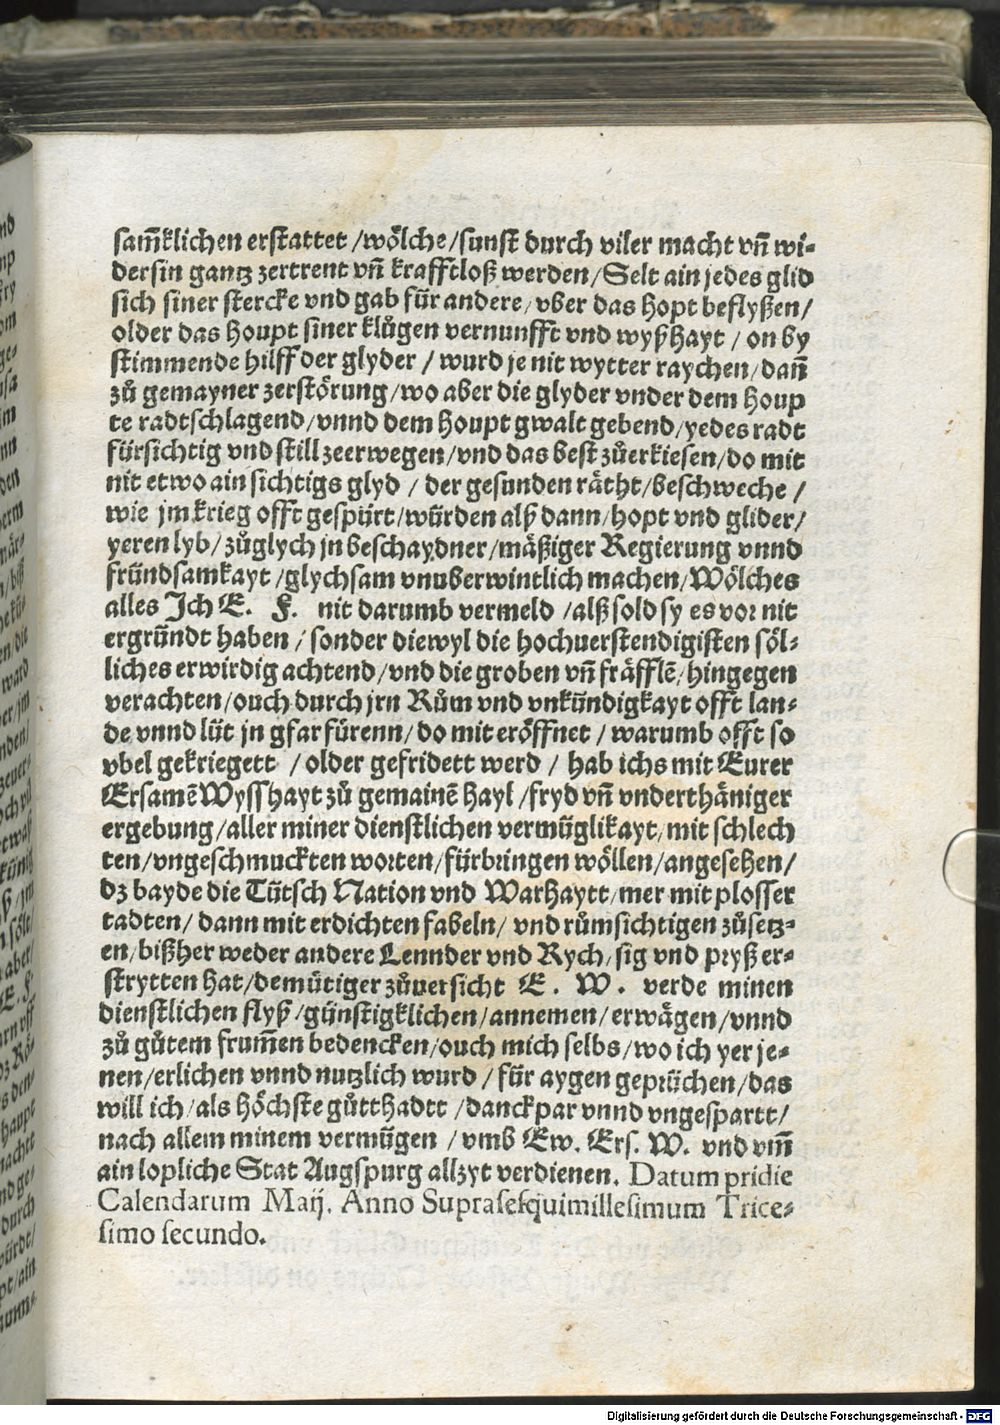 sam̃klichen erstattet /wölche/sunst durch viler macht vñ wi-
dersin gantz zertrent vñ krafftloß werden/Selt ain jedes glid
sich siner stercke vnd gab für andere/vber das hopt beflyßen/
older das houpt siner klůgen vernunfft vnd wyßhayt / on by
stimmende hilff der glyder / wurd je nit wytter raychen/dañ
zů gemayner zerstörung/wo aber die glyder vnder dem houp
te radtschlagend/vnnd dem houpt gwalt gebend/yedes radt
fürsichtig vnd still zeerwegen/vnd das best zůerkiesen/do mit
nit etwo ain sichtigs glyd / der gesunden rätht/beschweche /
wie jm krieg offt gespürt/würden alß dann/hopt vnd glider/
yeren lyb/zůglych jn beschaydner/mäßiger Regierung vnnd
fründsamkayt /glychsam vnuberwintlich machen/Wölches
alles Ich E. F. nit darumb vermeld /alß sold sy es vor nit
ergründt haben / sonder diewyl die hochuerstendigisten söl-
liches erwirdig achtend/vnd die groben vñ fräfflē/hingegen
verachten/ouch durch jrn Rům vnd vnkündigkayt offt lan-
de vnnd lüt jn gfar fürenn/do mit eröffnet / warumb offt so
vbel gekriegett / older gefridett werd / hab ichs mit Eurer
Ersamē Wysshayt zů gemainē hayl /fryd vñ vnderthäniger
ergebung/aller miner dienstlichen vermüglikayt/mit schlech
ten/vngeschmuckten worten/fürbringen wöllen/angesehen/
dz bayde die Tütsch Nation vnd Warhaytt/mer mit plosser
tadten/ dann mit erdichten fabeln/ vnd růmsichtigen zůsetz-
en/bißher weder andere Lennder vnd Rych/sig vnd pryß er-
strytten hat/demütiger zůuersicht E. W. verde minen
dienstlichen flyß/günstigklichen/annemen/erwägen/vnnd
zů gůtem frum̃en bedencken/ouch mich selbs/wo ich yer je-
nen/erlichen vnnd nutzlich wurd /für aygen geprüchen/das
will ich/als höchste gůtthadtt /danckpar vnnd vngespartt/
nach allem minem vermügen /vmb Ew. Ers. W. vnd vm̃
ain lopliche Stat Augspurg allzyt verdienen. Datum pridie
Calendarum Maij. Anno Suprasesquimillesimum Trice-
simo secundo.
Digitalisierung gefördert durch die Deutsche Forschungsgemeinschaft - DFG